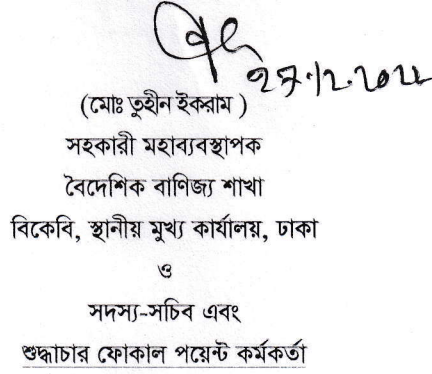 (মোঃ তুহীন ইকরাম )
সহকারী মহাব্যবস্থাপক
বৈদেশিক বাণিজ্য শাখা
বিকেবি, স্থানীয় মুখ্য কার্যালয়, ঢাকা
ও
সদস্য-সচিব এবং
শুদ্ধাচার ফোকাল পয়েন্ট কর্মকর্তা